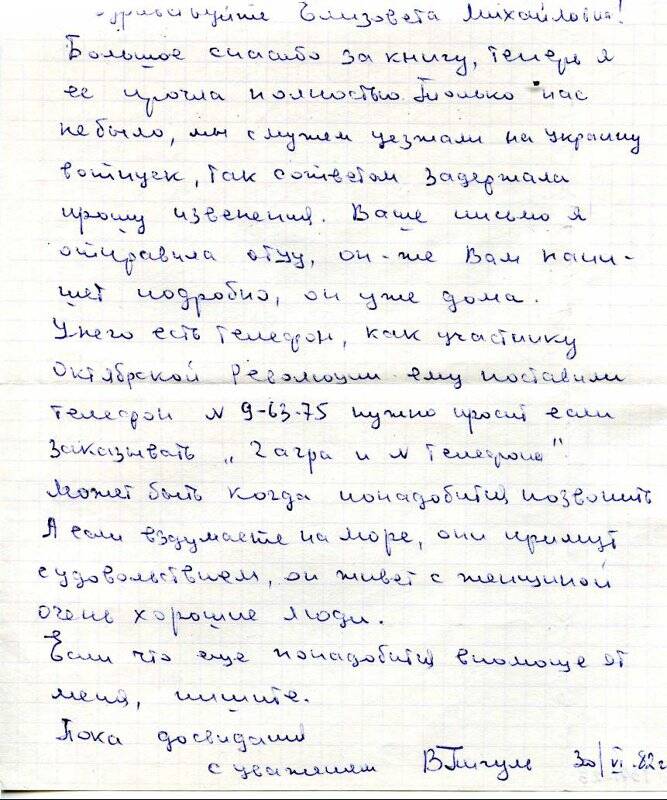 Здравствуйте Елизовета Михайловна!
Большое спасибо за книгу, теперь я
ее прочла полностью. Только нас
не было, мы с мужем уезжали на Украину
вотпуск, так сответом задержала
прошу извенения. Ваше письмо я
отправила отцу, он-же Вам напи-
шет подробно, он уже дома.
Унего есть телефон, как участнику
Октябрской Революции ему поставили
телефон N 9-63-75 нужно просит если
заказывать „Гагра и N телефона"
Может быть когда понадобится позвонить
А если вздумаете на море, они примут
с удовольствием, он живет с женщиной
очень хорошие люди.
Если что еще понадобится впомоще от
меня, пишите.
Пока досвидания
с уважением ВПигуль 30/VI.82г